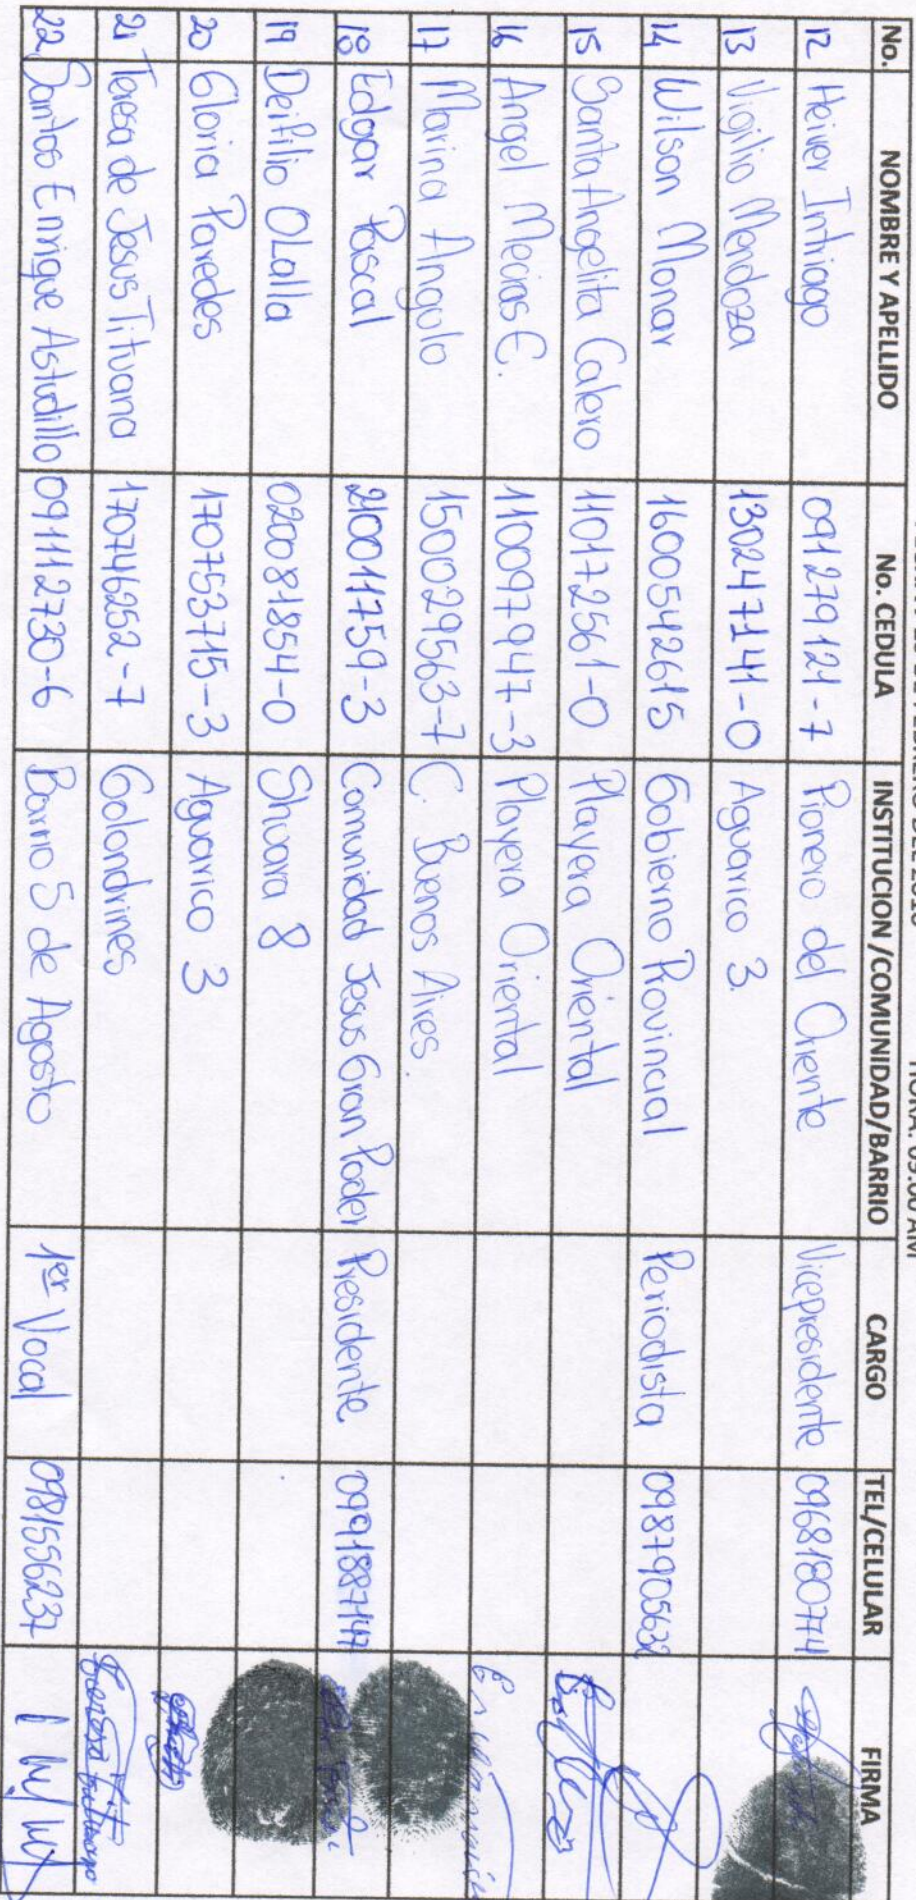 HORA: 09:00 AM
No. NOMBRE Y APELLIDO No. CEDULA INSTITUCION /COMUNIDAD/BARRIO CARGO TEL/CELULAR FIRMA
12 Heiver Intriago 091279121-7 Pionero del Oriente Vicepresidente 0968180774
13 Vigilio Mendoza 130247141-0 Aguarico 3.
14 Wilson Monar 1600542615 Gobierno Provincial Periodista 0987905632
15 Santa Angelita Calero 110172561-0 Playera Oriental
16 Angel Mecias E. 110097947-3 Playera Oriental
17 Marina Angulo 150029563-7 C. Buenos Aires.
18 Edgar Pascal 210011759-3 Comunidad Jesus Gran Poder Presidente 0991887147
19 Deifilio OLalla 020081854-0 Shuara 8
20 Gloria Paredes 170753715-3 Aguarico 3
21 Teresa de Jesus Tituana 170746252-7 Golondrines
22 Santos Enrique Astudillo 091112730-6 Barrio 5 de Agosto 1er Vocal 0981556237